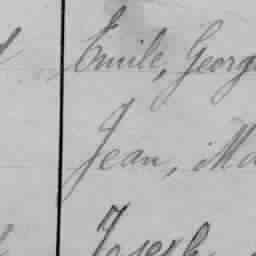 Emile, Georg
Jean, Ma
Joseph